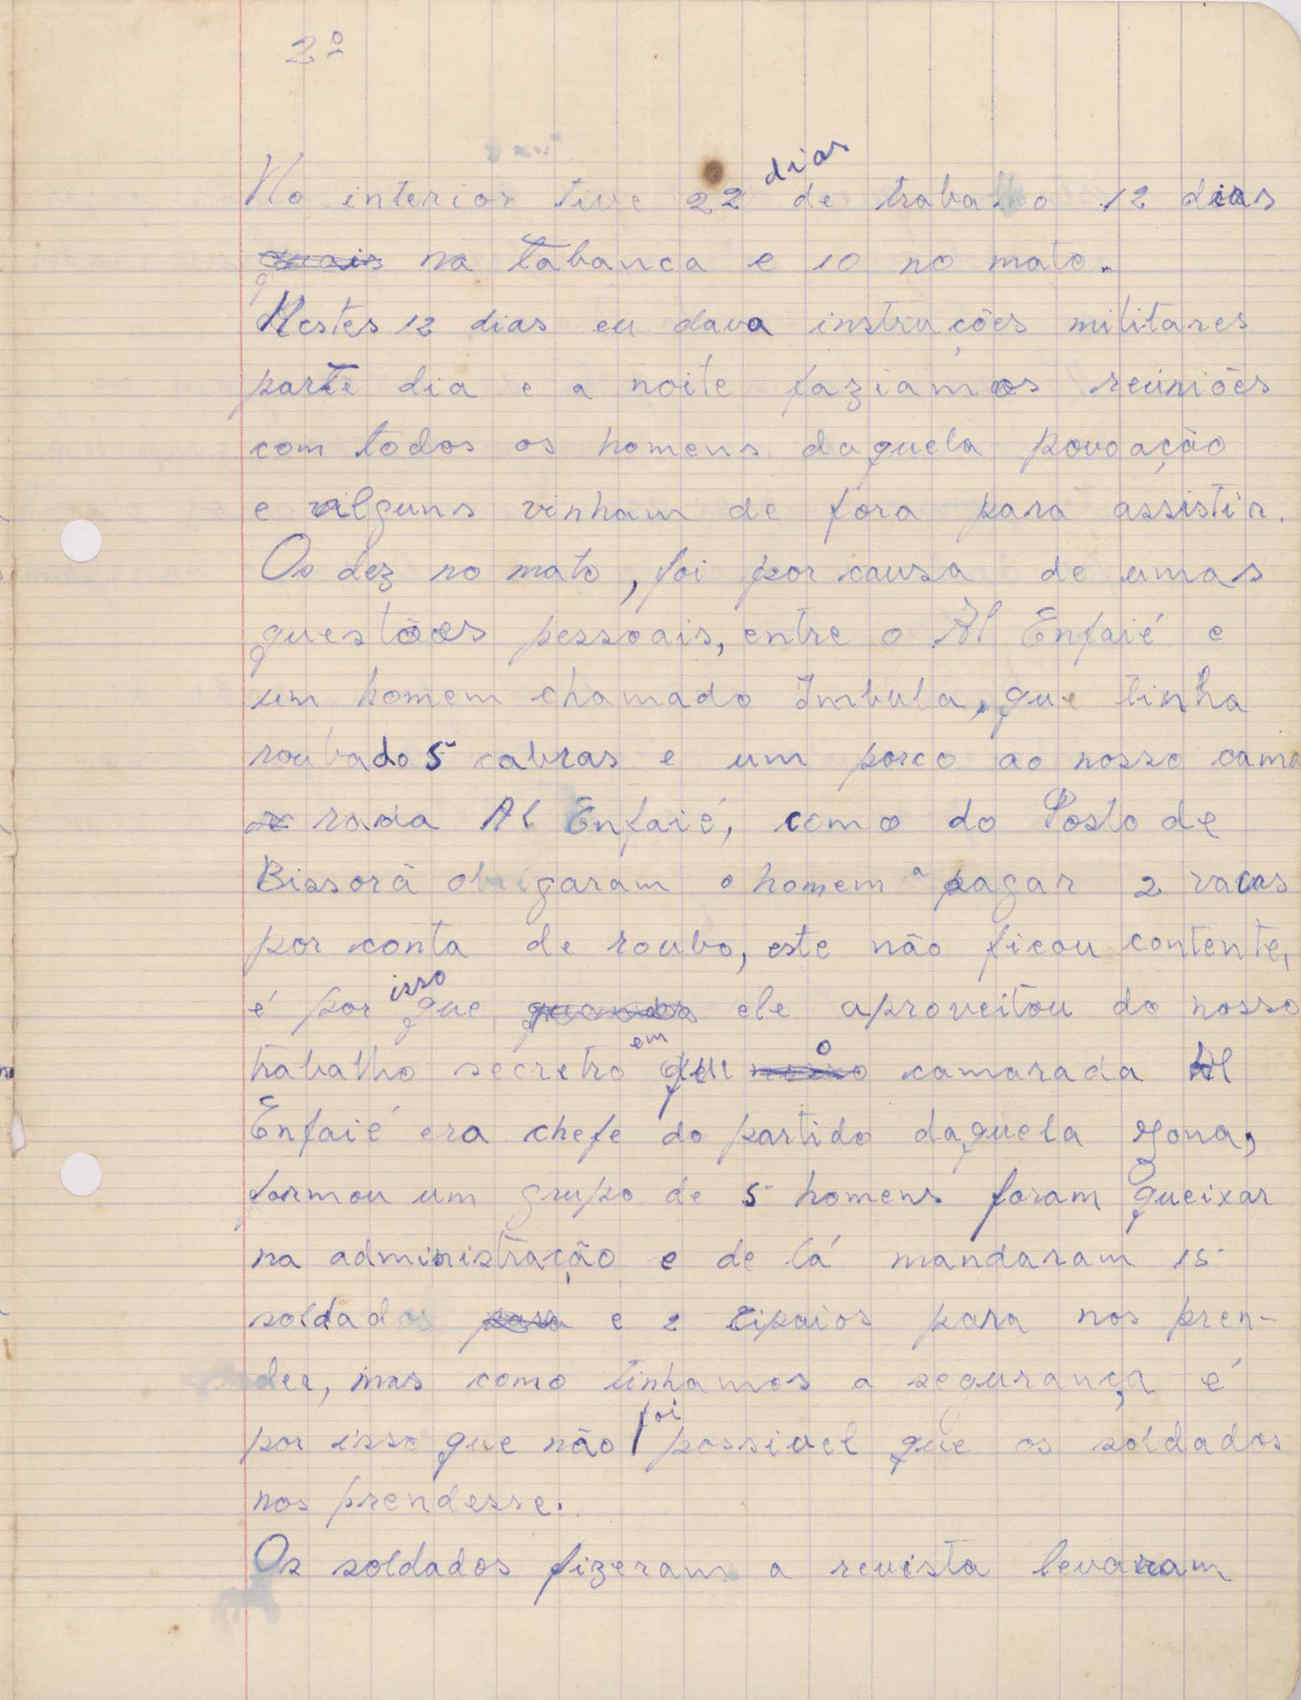 2º
No interior tive 22 dias de trabalho 12 dias
quais na tabanca e 10 no mato.
Nestes 12 dias eu dava instruções militares
parte dia e a noite faziamos reuniões
com todos os homens daquela povoação
e alguns vinham de fora para assistir.
Os dez no mato, foi por causa de umas
questões pessoais, entre o Al Enfaié e
um homem chamado Imbula, que tinha
roubado 5 cabras e um porco ao nosso cama
rada Al Enfaié, como do Posto de
Bissorã obrigaram o homem a pagar 2 vacas
por conta de roubo, este não ficou contente,
é por isso que quando ele aproveitou do nosso
trabalho secreto em que nosso o camarada Al
Enfaié era chefe do partido daquela zona,
formou um grupo de 5 homens foram queixar
na administração e de lá mandaram 15
soldados para e 2 cipaios para nos pren-
der, mas como tinhamos a segurança é
por isso que não foi possivel que os soldados
nos prendesse.
Os soldados fizeram a revista levaram